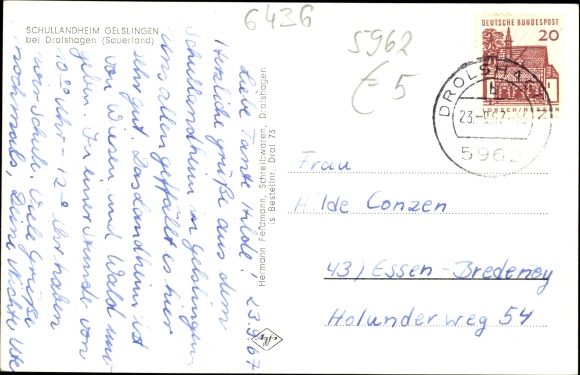 6436
5962
€5
SCHULLANDHEIM GELSLINGEN
bei Drolshagen (Sauerland)
DEUTSCHE BUNDESPOST
20
LORSCH/HESSEN
DROLSHAGEN
b
23.-9.67
5962
23.9.67
Liebe Tante Hilde!
Herzliche Grüße aus dem
Schullandheim in Gelslingen.
Uns allen gefällt es hier
sehr gut. Das Landheim ist
von Wiesen und Wald um-
geben. In einer Stunde von
10⁰⁰ Uhr - 12⁰⁰ Uhr haben
wir Schule. Viele Grüße
nochmals, Deine Nichte Ute
Hermann Feldmann, Schreibwaren, Drolshagen
is Bestellnr. Drol 73
Agfa
Frau
Hilde Conzen
43) Essen-Bredeney
Holunderweg 54